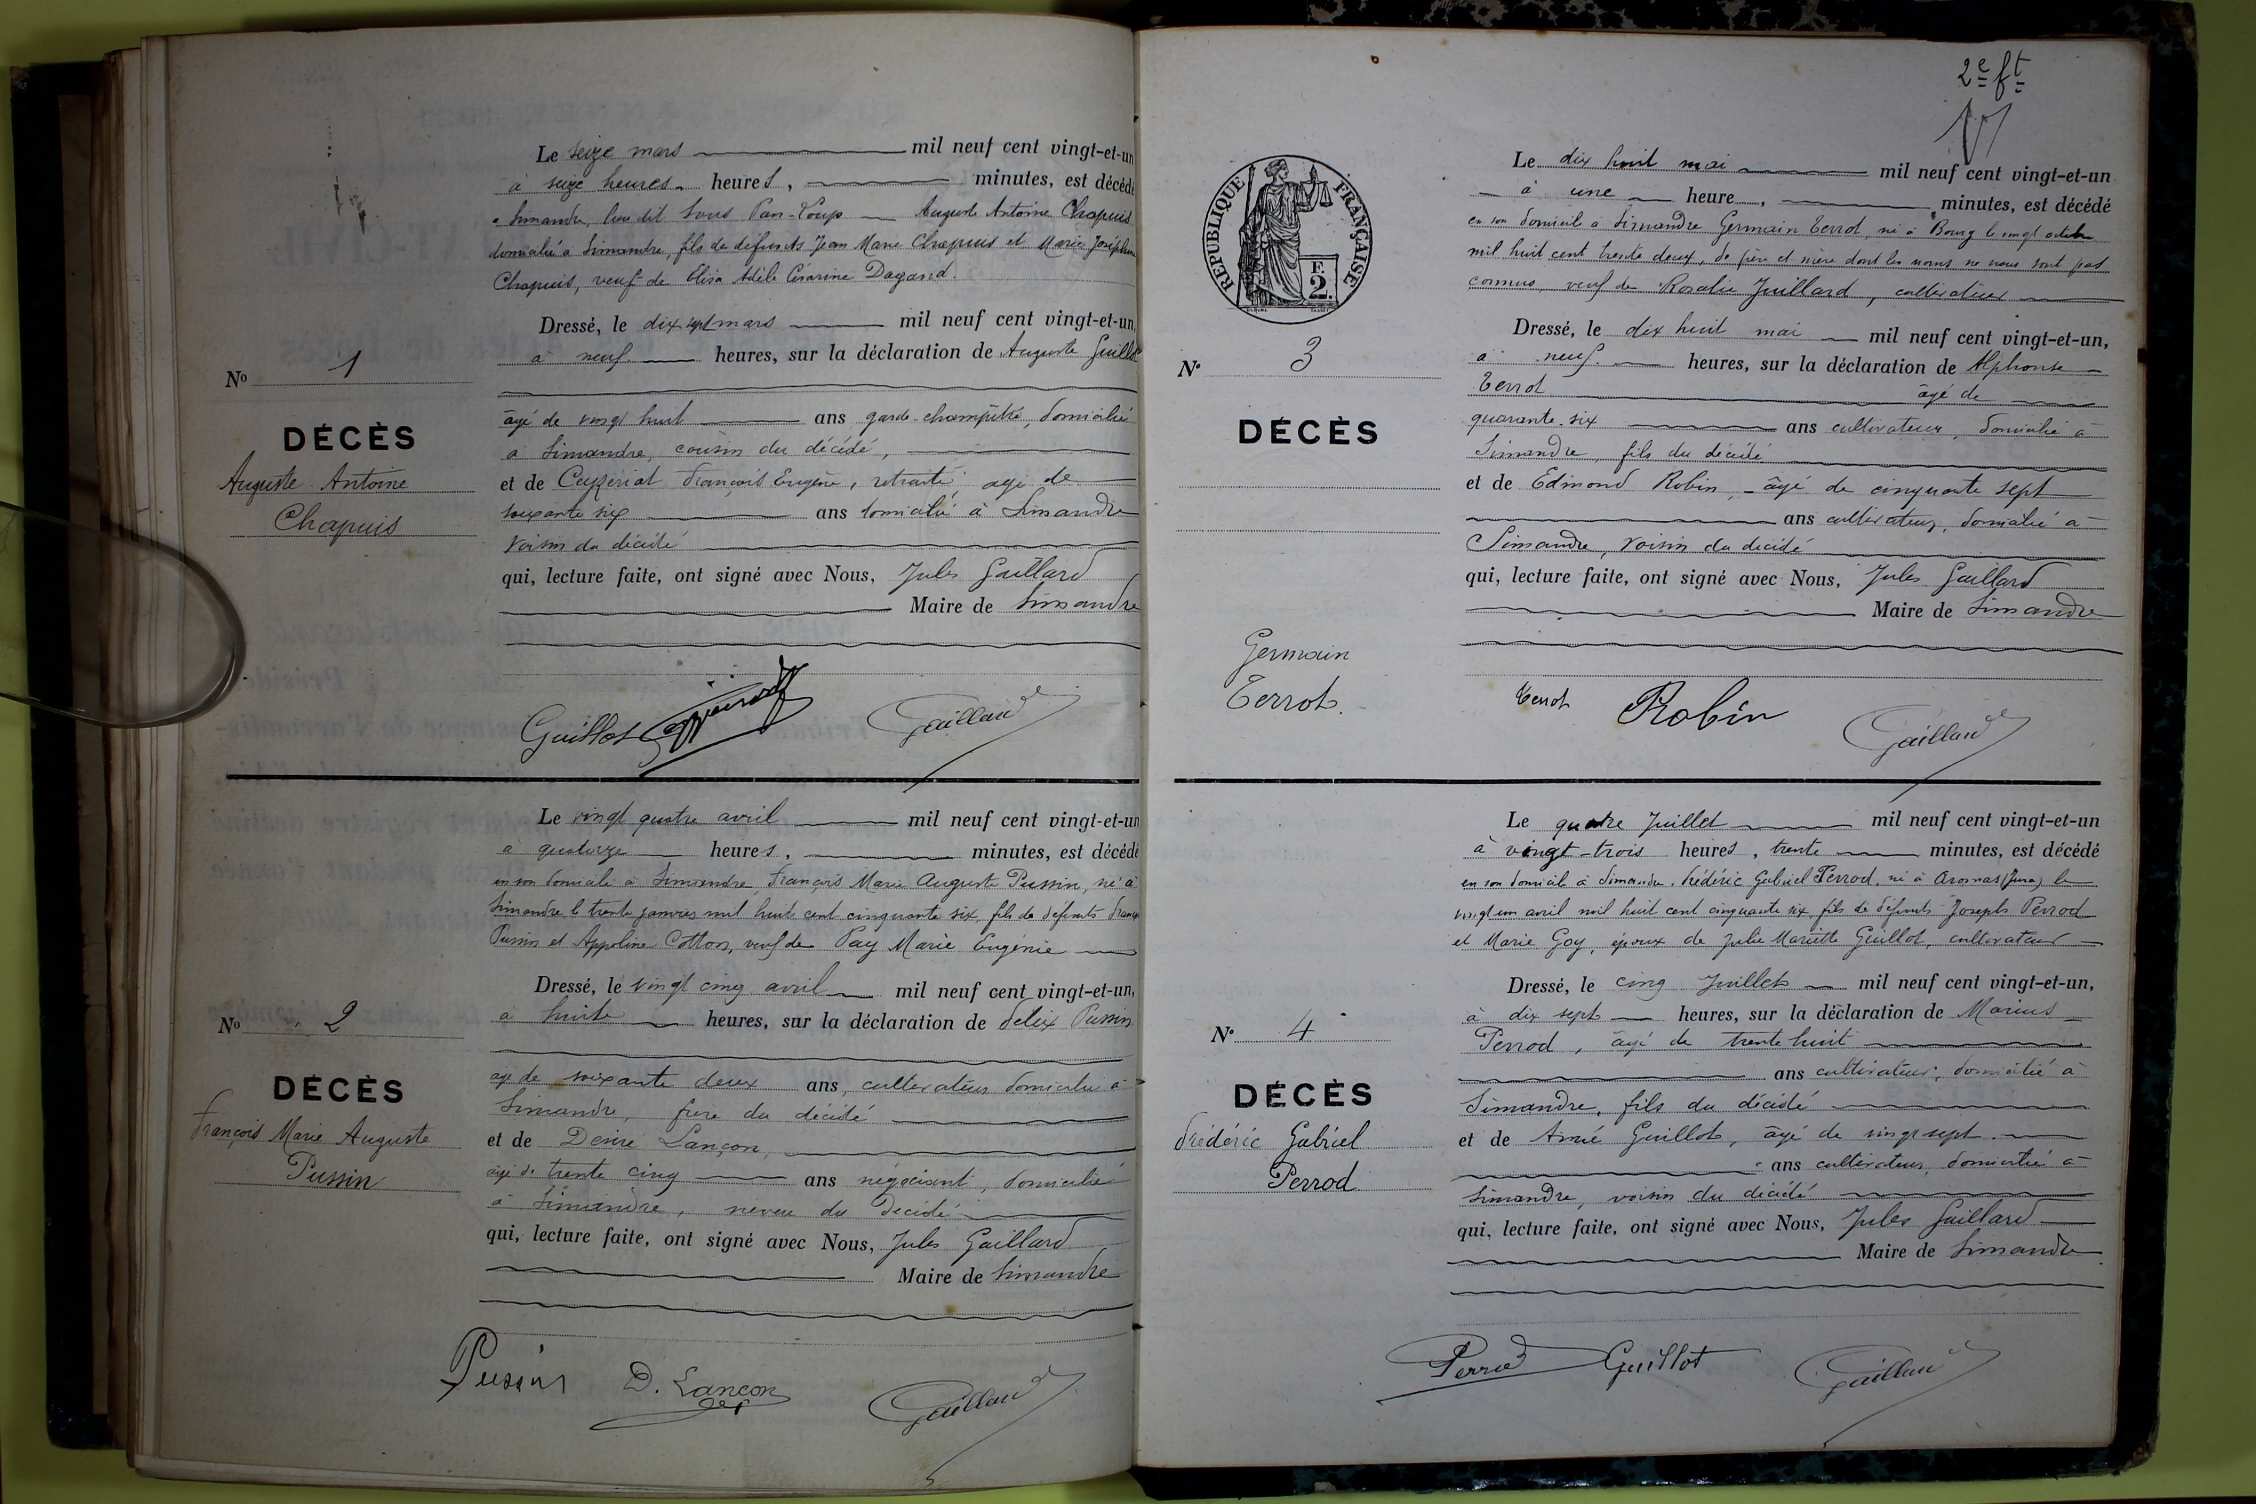 Le seize mars mil neuf cent vingt-et-un
à seize heures heures, minutes, est décédé
à Simandre, lieu dit Sous Pan-Loup Auguste Antoine Chapuis
domicilié à Simandre, fils de défunts Jean Marie Chapuis et Marie Joséphine
Chapuis, veuf de Elisa Adèle Césarine Dagand.
Dressé, le dix sept mars mil neuf cent vingt-et-un,
à neuf heures, sur la déclaration de Auguste Guillot
No 1
âgé de vingt huit ans garde-champêtre, domicilié
DÉCÈS
à Simandre, cousin du décédé,
Auguste Antoine
et de Ceyzériat François Eugène, retraité agé de
Chapuis
soixante six ans domicilié à Simandre
voisin du décédé
qui, lecture faite, ont signé avec Nous, Jules Gaillard
Maire de Simandre
Guillot Gaillard
Le vingt quatre avril mil neuf cent vingt-et-un
à quatorze heures, minutes, est décédé
en son domicile à Simandre François Marie Auguste Pussin, né à
Simandre le trente janvier mil huit cent cinquante six, fils de défunts François
Pussin et Appoline Cotton, veuf de Pay Marie Eugénie
Dressé, le vingt cinq avril mil neuf cent vingt-et-un,
à huit heures, sur la déclaration de Félix Pussin
No 2
agé de soixante deux ans, cultivateur domicilié à
DÉCÈS
Simandre, frère du décédé
François Marie Auguste
et de Désiré Lançon,
Pussin
âgé de trente cinq ans négociant, domicilié
à Simandre, neveu du décédé
qui, lecture faite, ont signé avec Nous, Jules Gaillard
Maire de Simandre
Pussin D. Lançon Gaillard
2e ft
RÉPUBLIQUE FRANÇAISE
F.
2.
Le dix huit mai mil neuf cent vingt-et-un
à une heure, minutes, est décédé
en son domicile à Simandre Germain Terrot, né à Bourg le vingt octobre
mil huit cent trente deux, de père et mère dont les noms ne nous sont pas
connus, veuf de Rosalie Juillard, cultivateur
Dressé, le dix huit mai mil neuf cent vingt-et-un,
No 3
à neuf heures, sur la déclaration de Alphonse
Terrot âgé de
DÉCÈS
quarante-six ans cultivateur, domicilié à
Simandre, fils du décédé
et de Edmond Robin, âgé de cinquante sept
ans cultivateur, domicilié à
Simandre, voisin du décédé
qui, lecture faite, ont signé avec Nous, Jules Gaillard
Maire de Simandre
Germain
Terrot.
Terrot Robin Gaillard
Le quatre Juillet mil neuf cent vingt-et-un
à vingt-trois heures, trente minutes, est décédé
en son domicile à Simandre, Frédéric Gabriel Perrod, né à Aromas (Jura) le
vingt un avril mil huit cent cinquante six, fils de défunts Joseph Perrod
et Marie Goy, époux de Julie Mariette Guillot, cultivateur
Dressé, le cinq Juillet mil neuf cent vingt-et-un,
No 4
à dix sept heures, sur la déclaration de Marius
Perrod, âgé de trente huit
DÉCÈS
ans cultivateur, domicilié à
Simandre, fils du décédé
Frédéric Gabriel
et de Aimé Guillot, âgé de vingt sept
Perrod
ans cultivateur, domicilié à
Simandre, voisin du décédé
qui, lecture faite, ont signé avec Nous, Jules Gaillard
Maire de Simandre
Perrod Guillot Gaillard